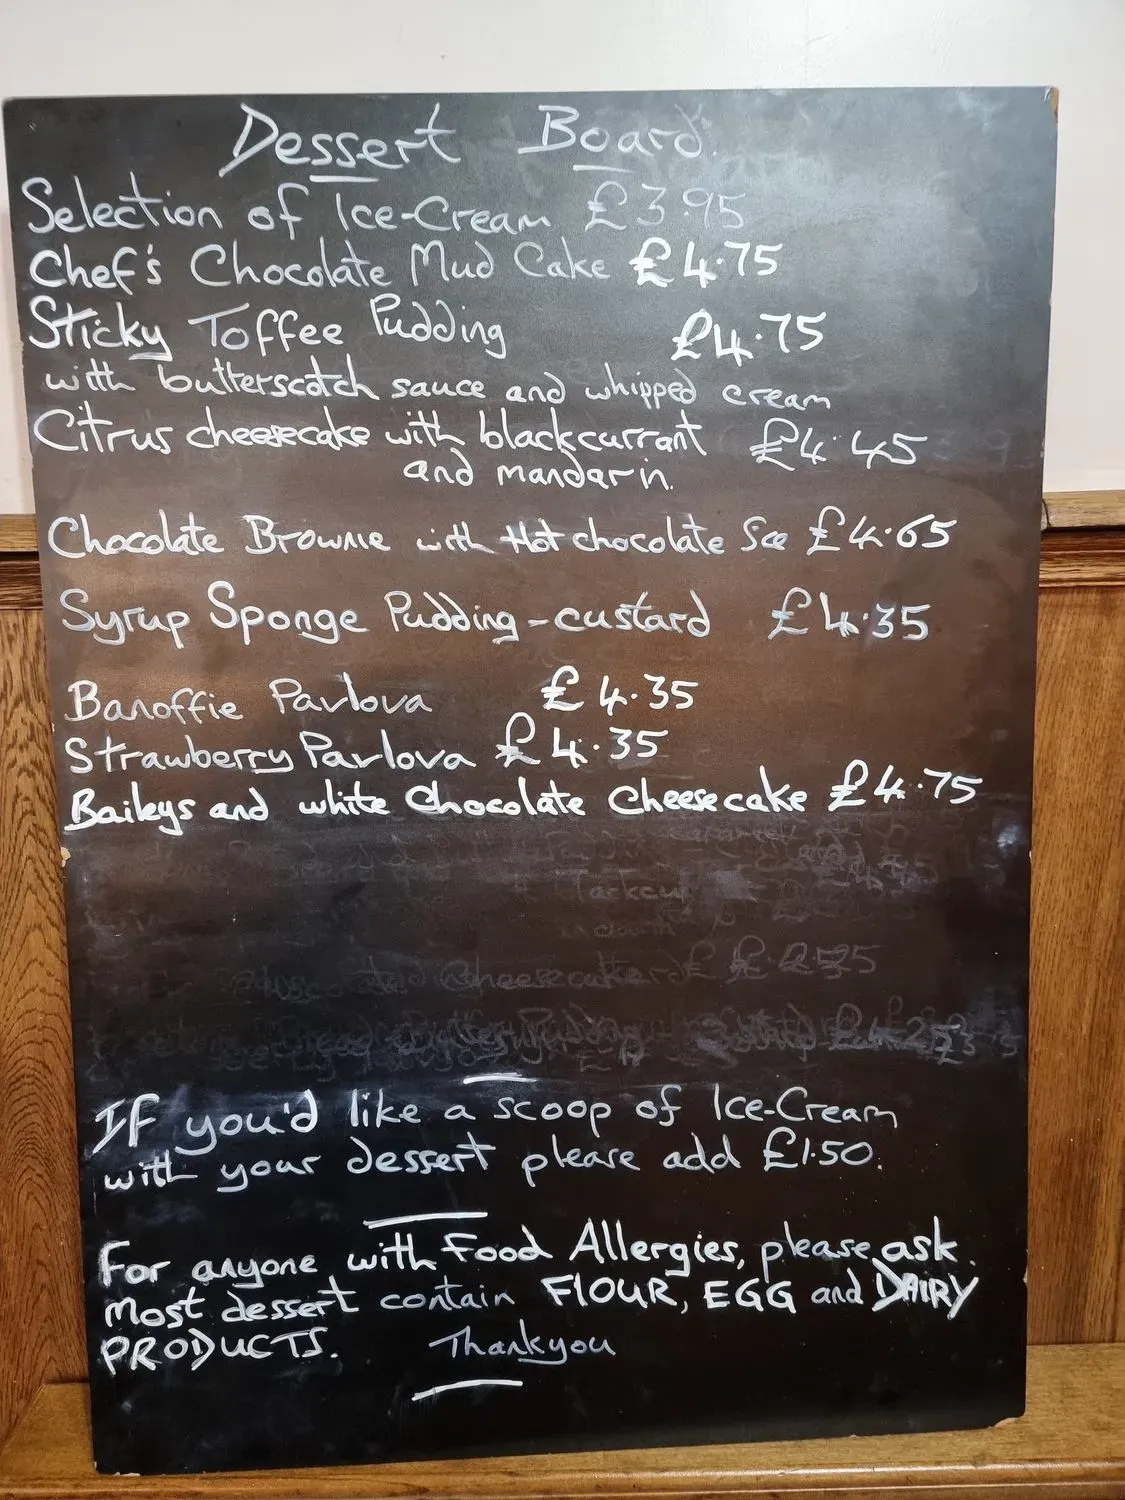 Dessert Board.
Selection of Ice-Cream £3.95
Chef's Chocolate Mud Cake £4.75
Sticky Toffee Pudding £4.75
with butterscotch sauce and whipped cream
Citrus cheesecake with blackcurrant £4.45
and mandarin.
Chocolate Brownie with Hot chocolate Sce £4.65
Syrup Sponge Pudding - custard £4.35
Banoffie Pavlova £4.35
Strawberry Pavlova £4.35
Baileys and white Chocolate Cheesecake £4.75
Cheesecake
Pudding
If you'd like a scoop of Ice-Cream
with your dessert please add £1.50.
For anyone with Food Allergies, please ask.
Most dessert contain FLOUR, EGG and DAIRY
PRODUCTS. Thankyou